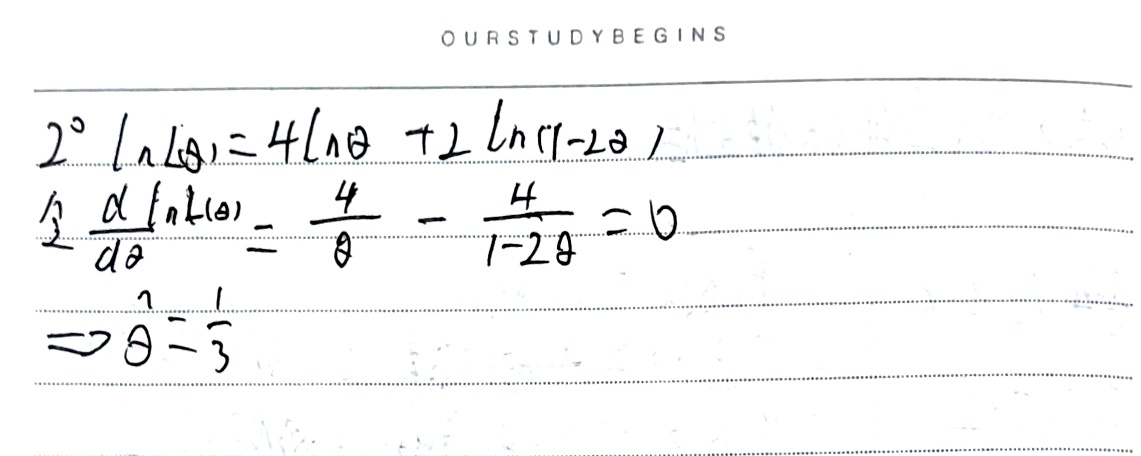 OURSTUDYBEGINS
2° ln L(θ) = 4 ln θ + 2 ln (1-2θ)
令 d ln L(θ) / dθ = 4/θ - 4/(1-2θ) = 0
⇒ θ̂ = 1/3